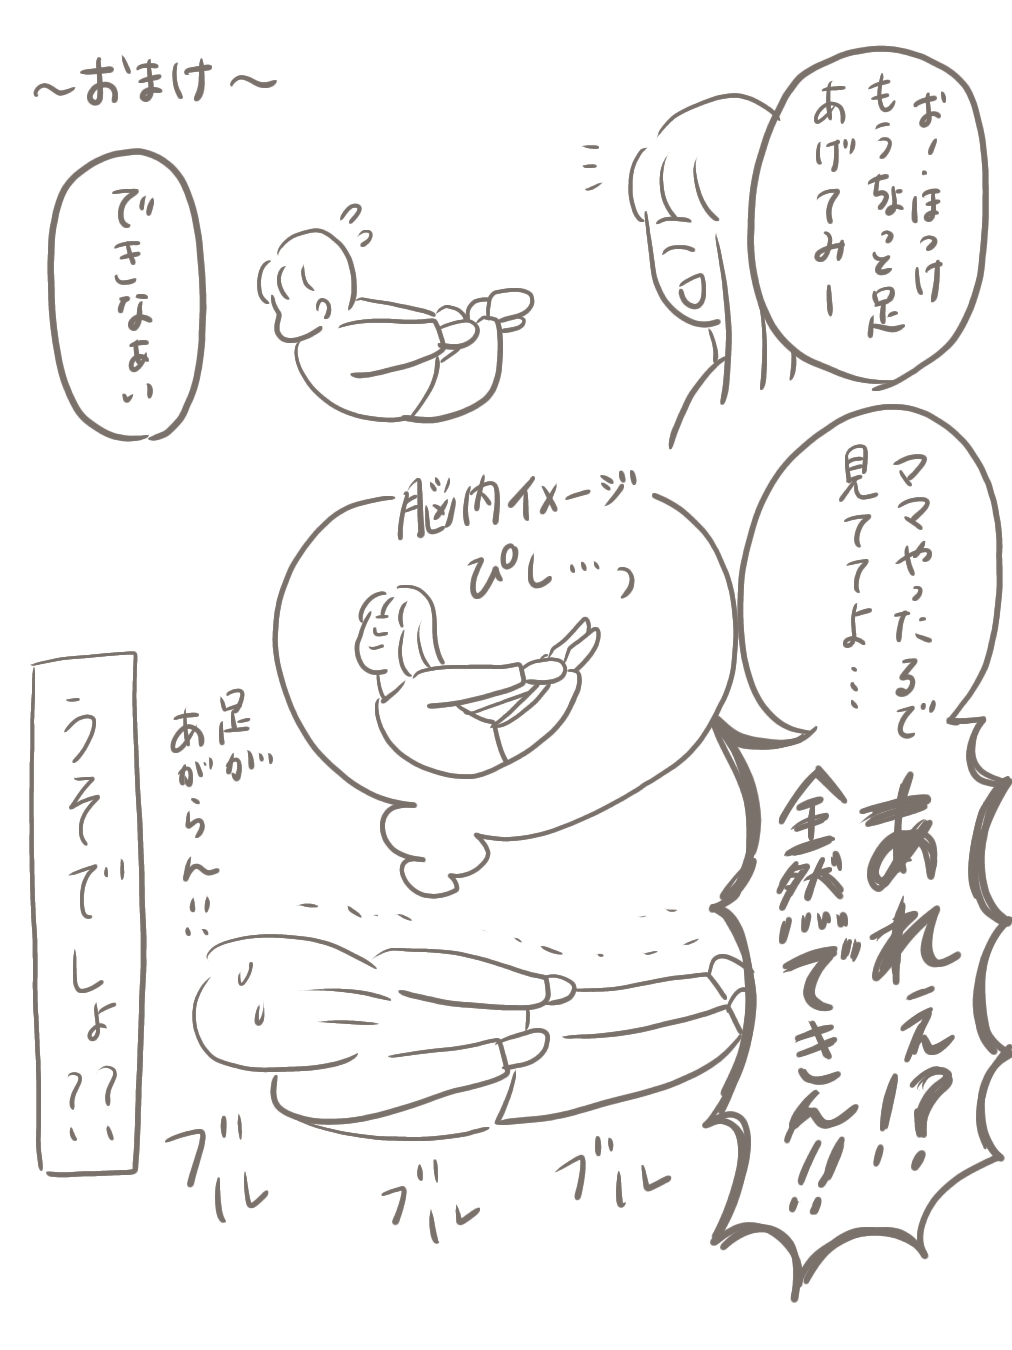 ～おまけ～
お、ほっけ
もうちょっと足
あげてみー
できなぁい
ママやったるで
見ててよ…
脳内イメージ
ぴし…っ
あれぇ!?
全然できん!!
足が
あがらん!!
うそでしょ??
ブル
ブル
ブル